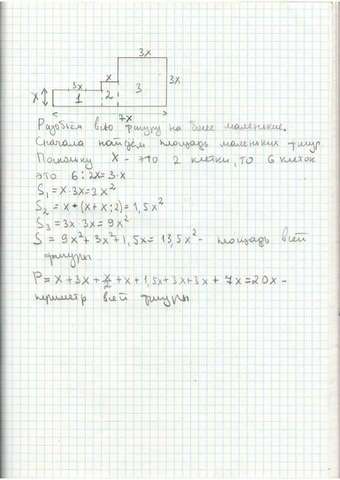 3x
x
3x
3x
x
1
2
3
7x
Разобьём всю фигуру на более маленькие.
Сначала найдём площадь маленьких фигур
Поскольку X - это 2 клетки, то 6 клеток
это 6:2x=3·x
S₁=x·3x=3x²
S₂=x+(x+x:2)=1,5x²
S₃=3x·3x=9x²
S=9x²+3x²+1,5x=13,5x² - площадь всей
фигуры
P=x+3x+x/2+x+1,5x+3x+3x+7x=20x -
периметр всей фигуры